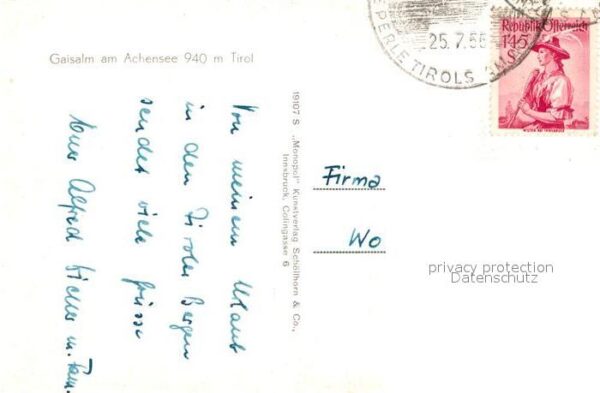 Gaisalm am Achensee 940 m Tirol
PERLE TIROLS
25.7.55
Republik Österreich
1S45
Von meinem Urlaub
in den Tiroler Bergen
sendet viele Grüsse
Euer Alfred u. Fam.
19107 S „Monopol" Kunstverlag Schöllhorn & Co.,
Innsbruck, Colingasse 6
Firma
Wo
privacy protection
Datenschutz